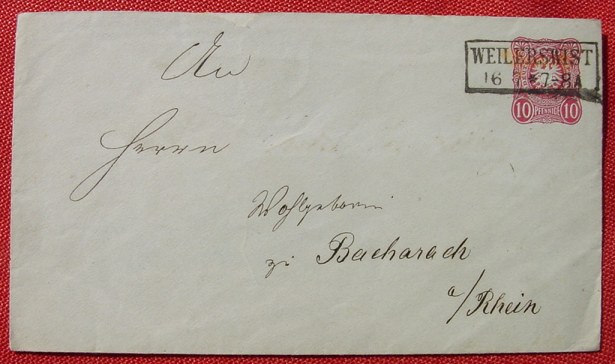 An
WEILERSWIST
16 7-8A
10 PFENNIGE 10
Herrn
Wohlgeboren
zu Bacharach
a/Rhein